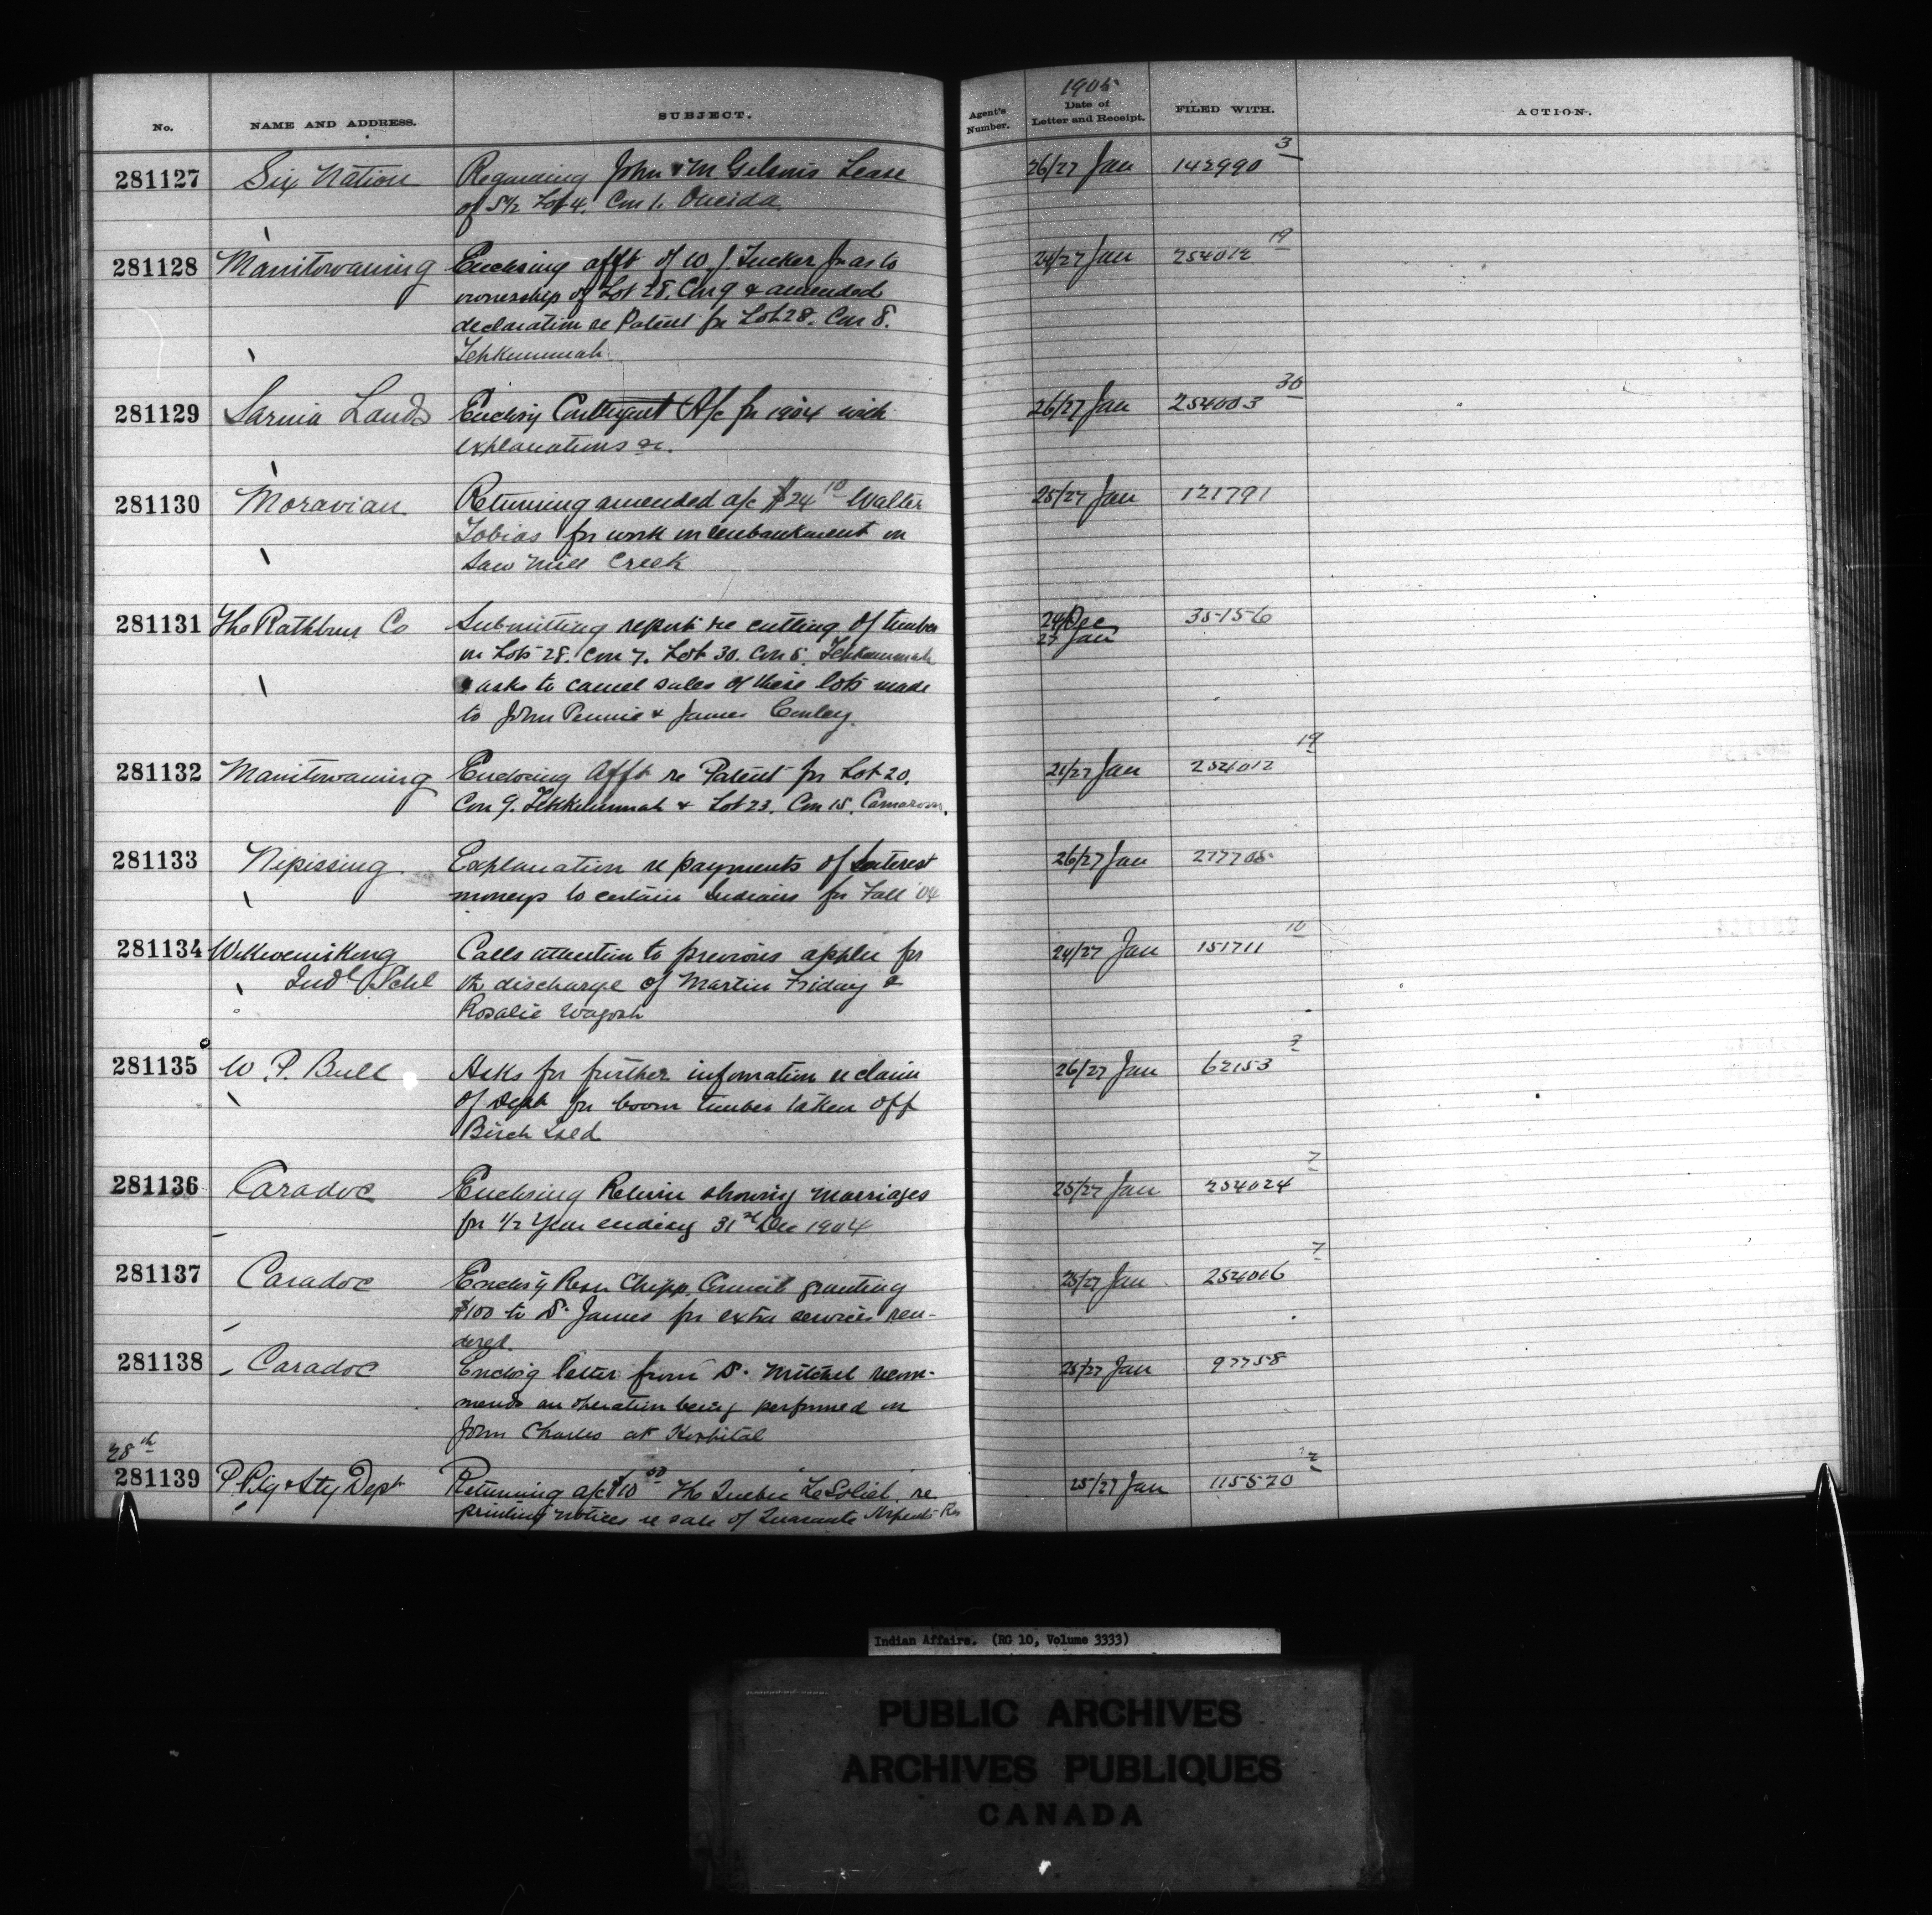 No. NAME AND ADDRESS. SUBJECT. Agent's Number. 1905 Date of Letter and Receipt. FILED WITH. ACTION.
281127 Six Nation Regarding John & M Gilson's Lease 26/27 Jan 142990 3
of S½ Lot 4. Con 1. Oneida.
281128 Manitowaning Enclosing afft of W. J. Tucker Jr as to 24/27 Jan 254012 19
ownership of Lot 28. Con 9 & amended
declaration re Patent for Lot 28. Con 8.
Tehkummah
281129 Sarnia Lands Enclosig Contingent A/c for 1904 with 26/27 Jan 254003 30
explanations &c.
281130 Moravian Returning amended a/c $24 10 Walter 25/27 Jan 121791
Tobias for work on embankment on
Saw Mill Creek
281131 The Rathbun Co Submitting report re cutting of timber 24 Dec 35156
on Lots 28. Con 7. Lot 30. Con 8. Tehkummah 27 Jan
& asks to cancel sales of these lots made
to John Pennie & James Conley.
281132 Manitowaning Enclosing Afft re Patent for Lot 20. 21/27 Jan 254012 19
Con 9. Tehkummah & Lot 23. Con 15. Carnarvon.
281133 Nipissing Explanation re payments of Interest 26/27 Jan 277705
moneys to certain Indians for Fall '04
281134 Wikwemikong Calls attention to previous applcn for 24/27 Jan 151711 10
Indl Schl the discharge of Martin Friday &
Rosalie Wagosh
281135 W. P. Bull Asks for further information re claim 26/27 Jan 62153 3
of Dept for boom timber taken off
Birch Isld
281136 Caradoc Enclosing Return showing marriages 25/27 Jan 254024 7
for 1/2 Year ending 31st Dec 1904
281137 Caradoc Enclos'g Resn Chipp. Council granting 25/27 Jan 254016 7
$100 to Dr James for extra services ren-
dered.
281138 Caradoc Enclos'g letter from Dr Mitchel recom- 25/27 Jan 97758
mends an operation being performed on
John Charles at Hospital
28th
281139 P. Ptg & Sty Dept Returning a/c $10 50 The Quebec "Le Soliel" re 25/27 Jan 115570 2
printing notices re sale of Quarante Arpents Res
Indian Affairs. (RG 10, Volume 3333)
PUBLIC ARCHIVES
ARCHIVES PUBLIQUES
CANADA